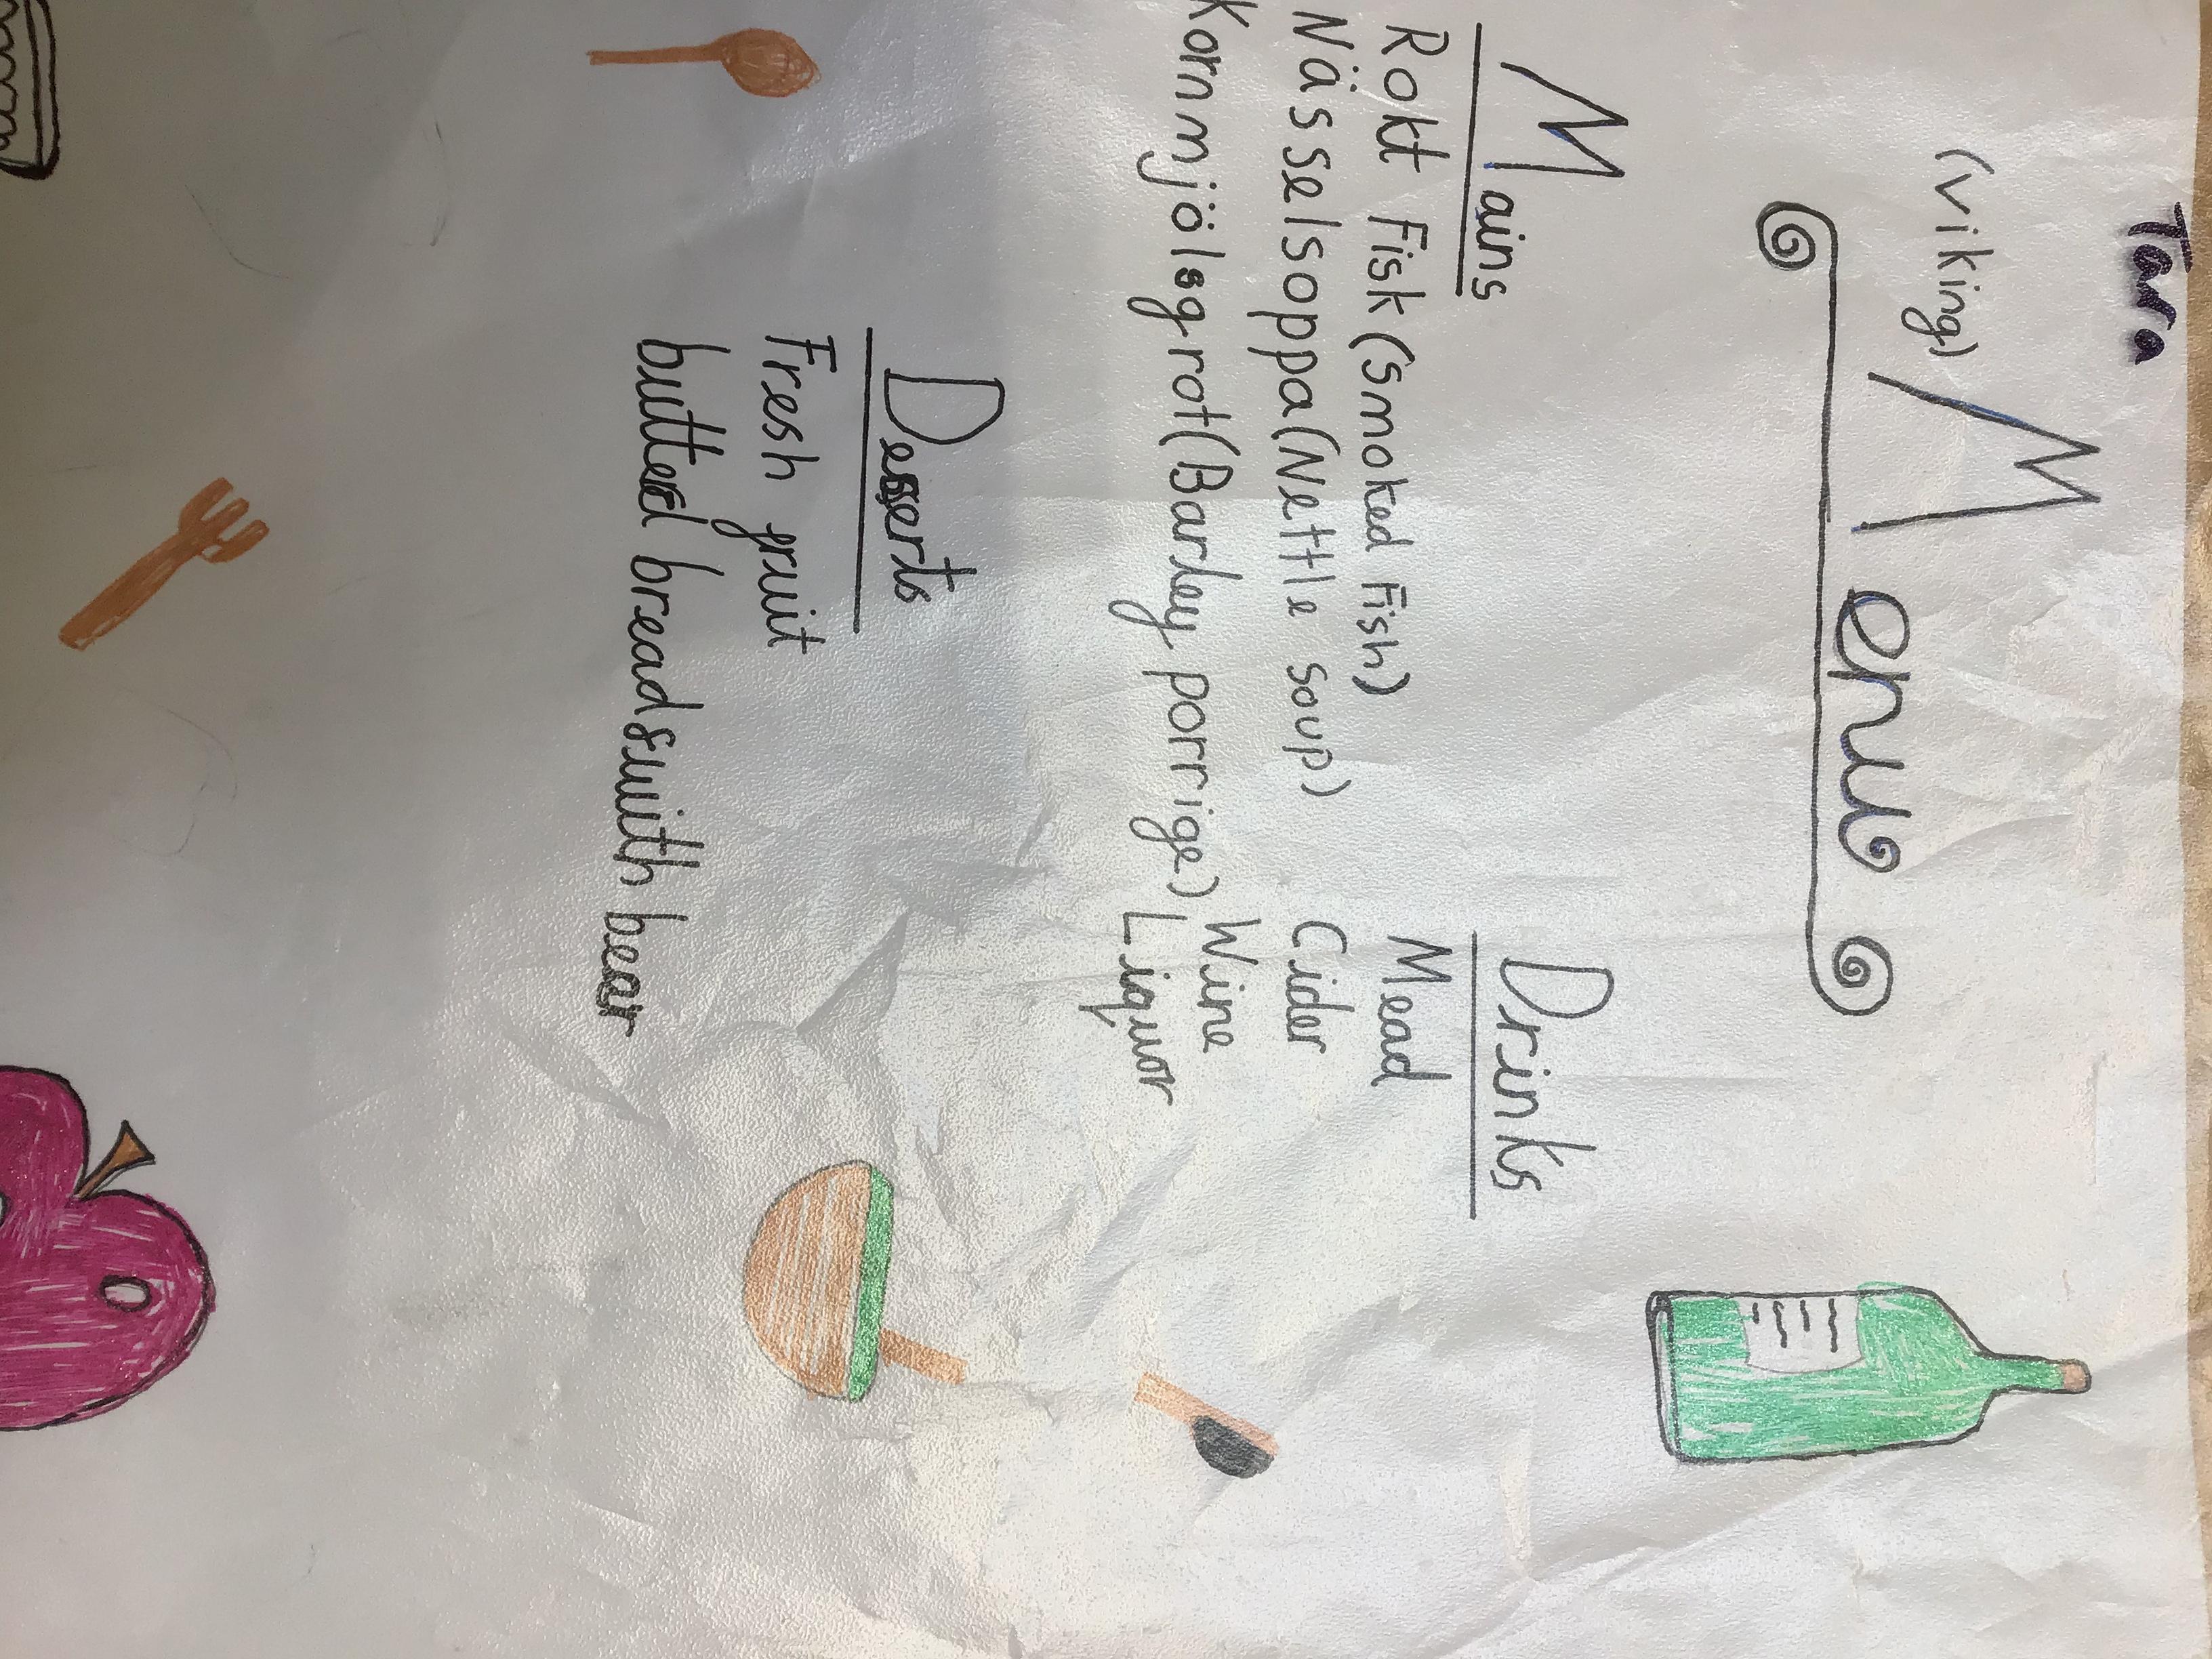 Tara
(viking) Menu
Mains
Rokt Fisk (Smoked Fish)
Nässelsoppa (Nettle soup)
Kornmjölsgrot (Barley porrige)
Drinks
Mead
Cider
Wine
Liquor
Desserts
Fresh fruit
butted bread & with bear